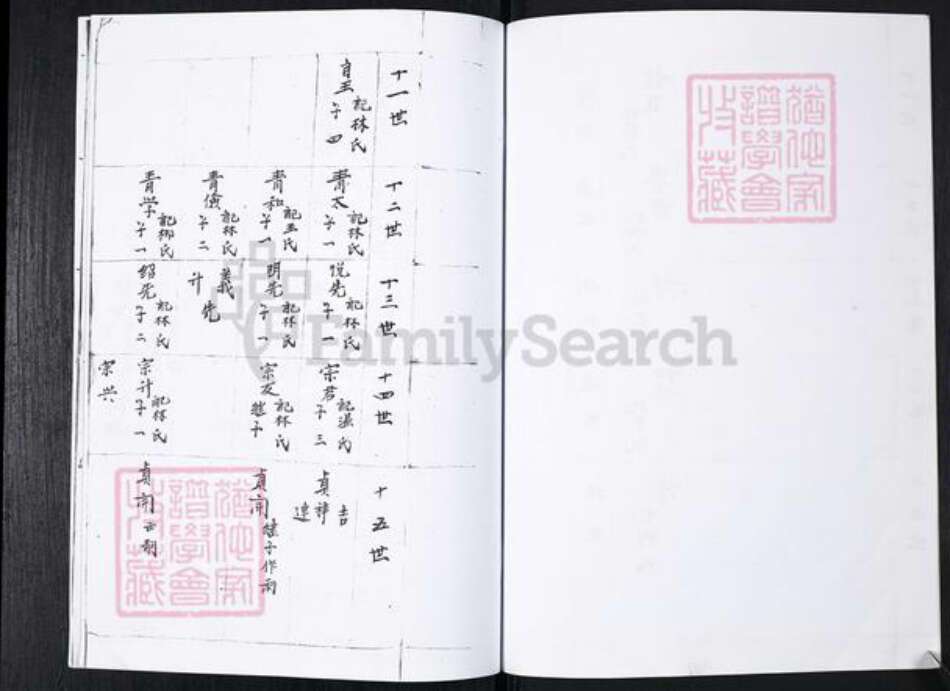 十一世
自玉
配林氏
子四
十二世
青太
配林氏
子一
青和
配王氏
子一
青儉
配林氏
子二
青学
配柳氏
子一
十三世
悦先
配林氏
子一
明先
配林氏
子一
義
计
先
紹先
配林氏
子二
十四世
宗君
配温氏
子三
宗友
配林氏
继子
宗计
配林氏
子一
宗兴
十五世
貞祥
吉
連
貞開
继子作雨
貞開
云嗣
猶他家
譜學會
收藏
猶他家
譜學會
收藏
FamilySearch